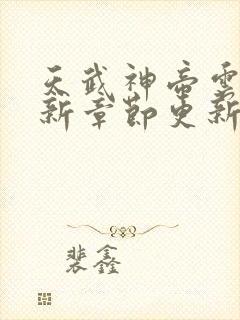 天武神帝雲
新章節更新
裴鑫